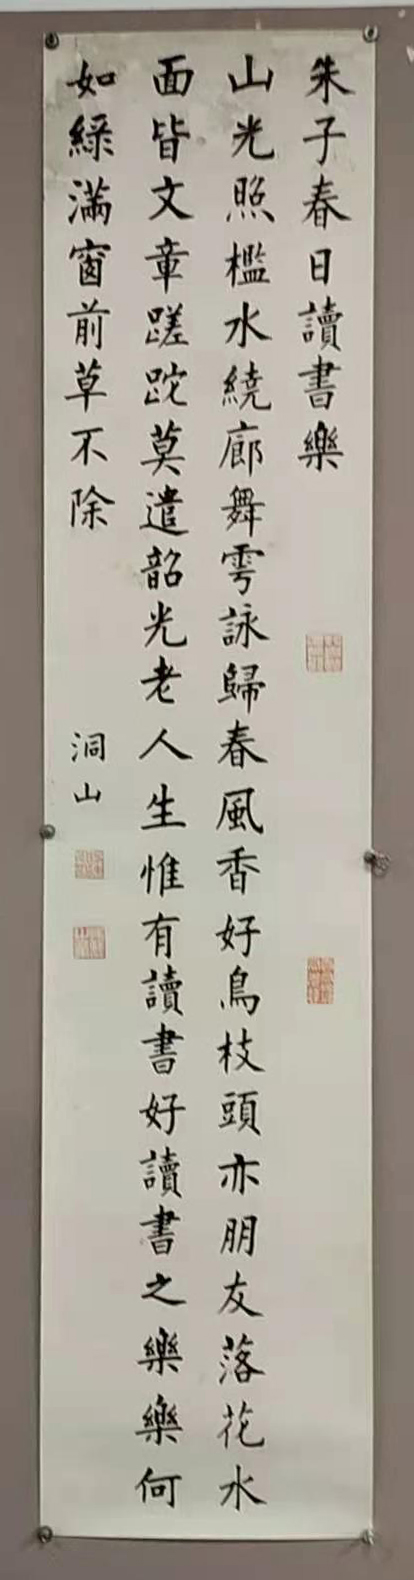 朱子春日讀書樂
山光照檻水繞廊舞雩詠歸春風香好鳥枝頭亦朋友落花水
面皆文章蹉跎莫遣韶光老人生惟有讀書好讀書之樂樂何
如綠滿窗前草不除
洞山